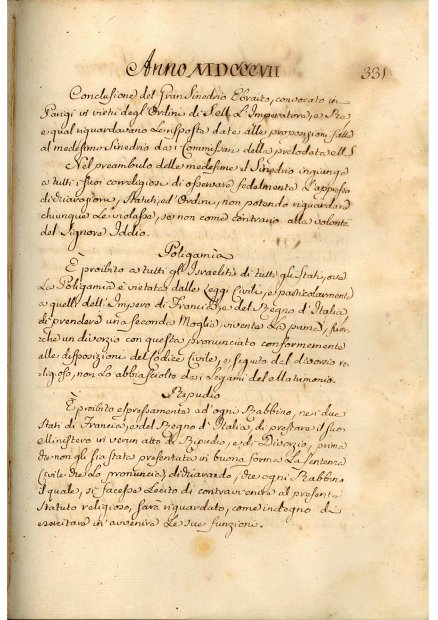 Anno MDCCCVII
331
Conclusione del Gran Sinedrio Ebraico, convocato in
Parigi in virtù degl'Ordini di S.M. L'Imperatore, e Re
e qual riguardavano le risposte date alle proposizioni fatte
al medesimo Sinedrio da i Commissari della prelodata M.S.
Nel preambulo delle medesime il Sinedrio ingiunge
a tutti i suoi correligiosi di osservare fedelmente l'appresso
Dichiarazioni, Statuti, ed'Ordini, non potendo riguardare
chiunque Le violasse, se non come contrario alla volontà
del Signore Iddio.
Poligamia
È proibito a tutti gl'Israeliti di tutti gli Stati, ove
La Poligamia è vietata dalle Leggi Civili, e particolarmente
a quelli dell'Impero di Francia, e del Regno d'Italia
di prendere una seconda Moglie, vivente La prima, fuor-
che un divorzio con questa pronunciato conformemente
alle disposizioni del Codice Civile, e seguito dal divorzio re-
ligioso, non Lo abbia sciolto dai Legami del Matrimonio.
Ripudio
È proibito espressamente ad'ogni Rabbino, ne i due
Stati di Francia, e del Regno d'Italia, di prestare il suo
Ministero in verun atto di Ripudio, e di Divorzio, prima
che non gli sia stata presentata in buona forma La sentenza
Civile che Lo pronuncia, che ogni Rabbino
il quale, si facesse Lecito di contravvenire al presente
Statuto religioso, sarà riguardato, come indegno di
esercitare in avvenire Le sue funzioni.